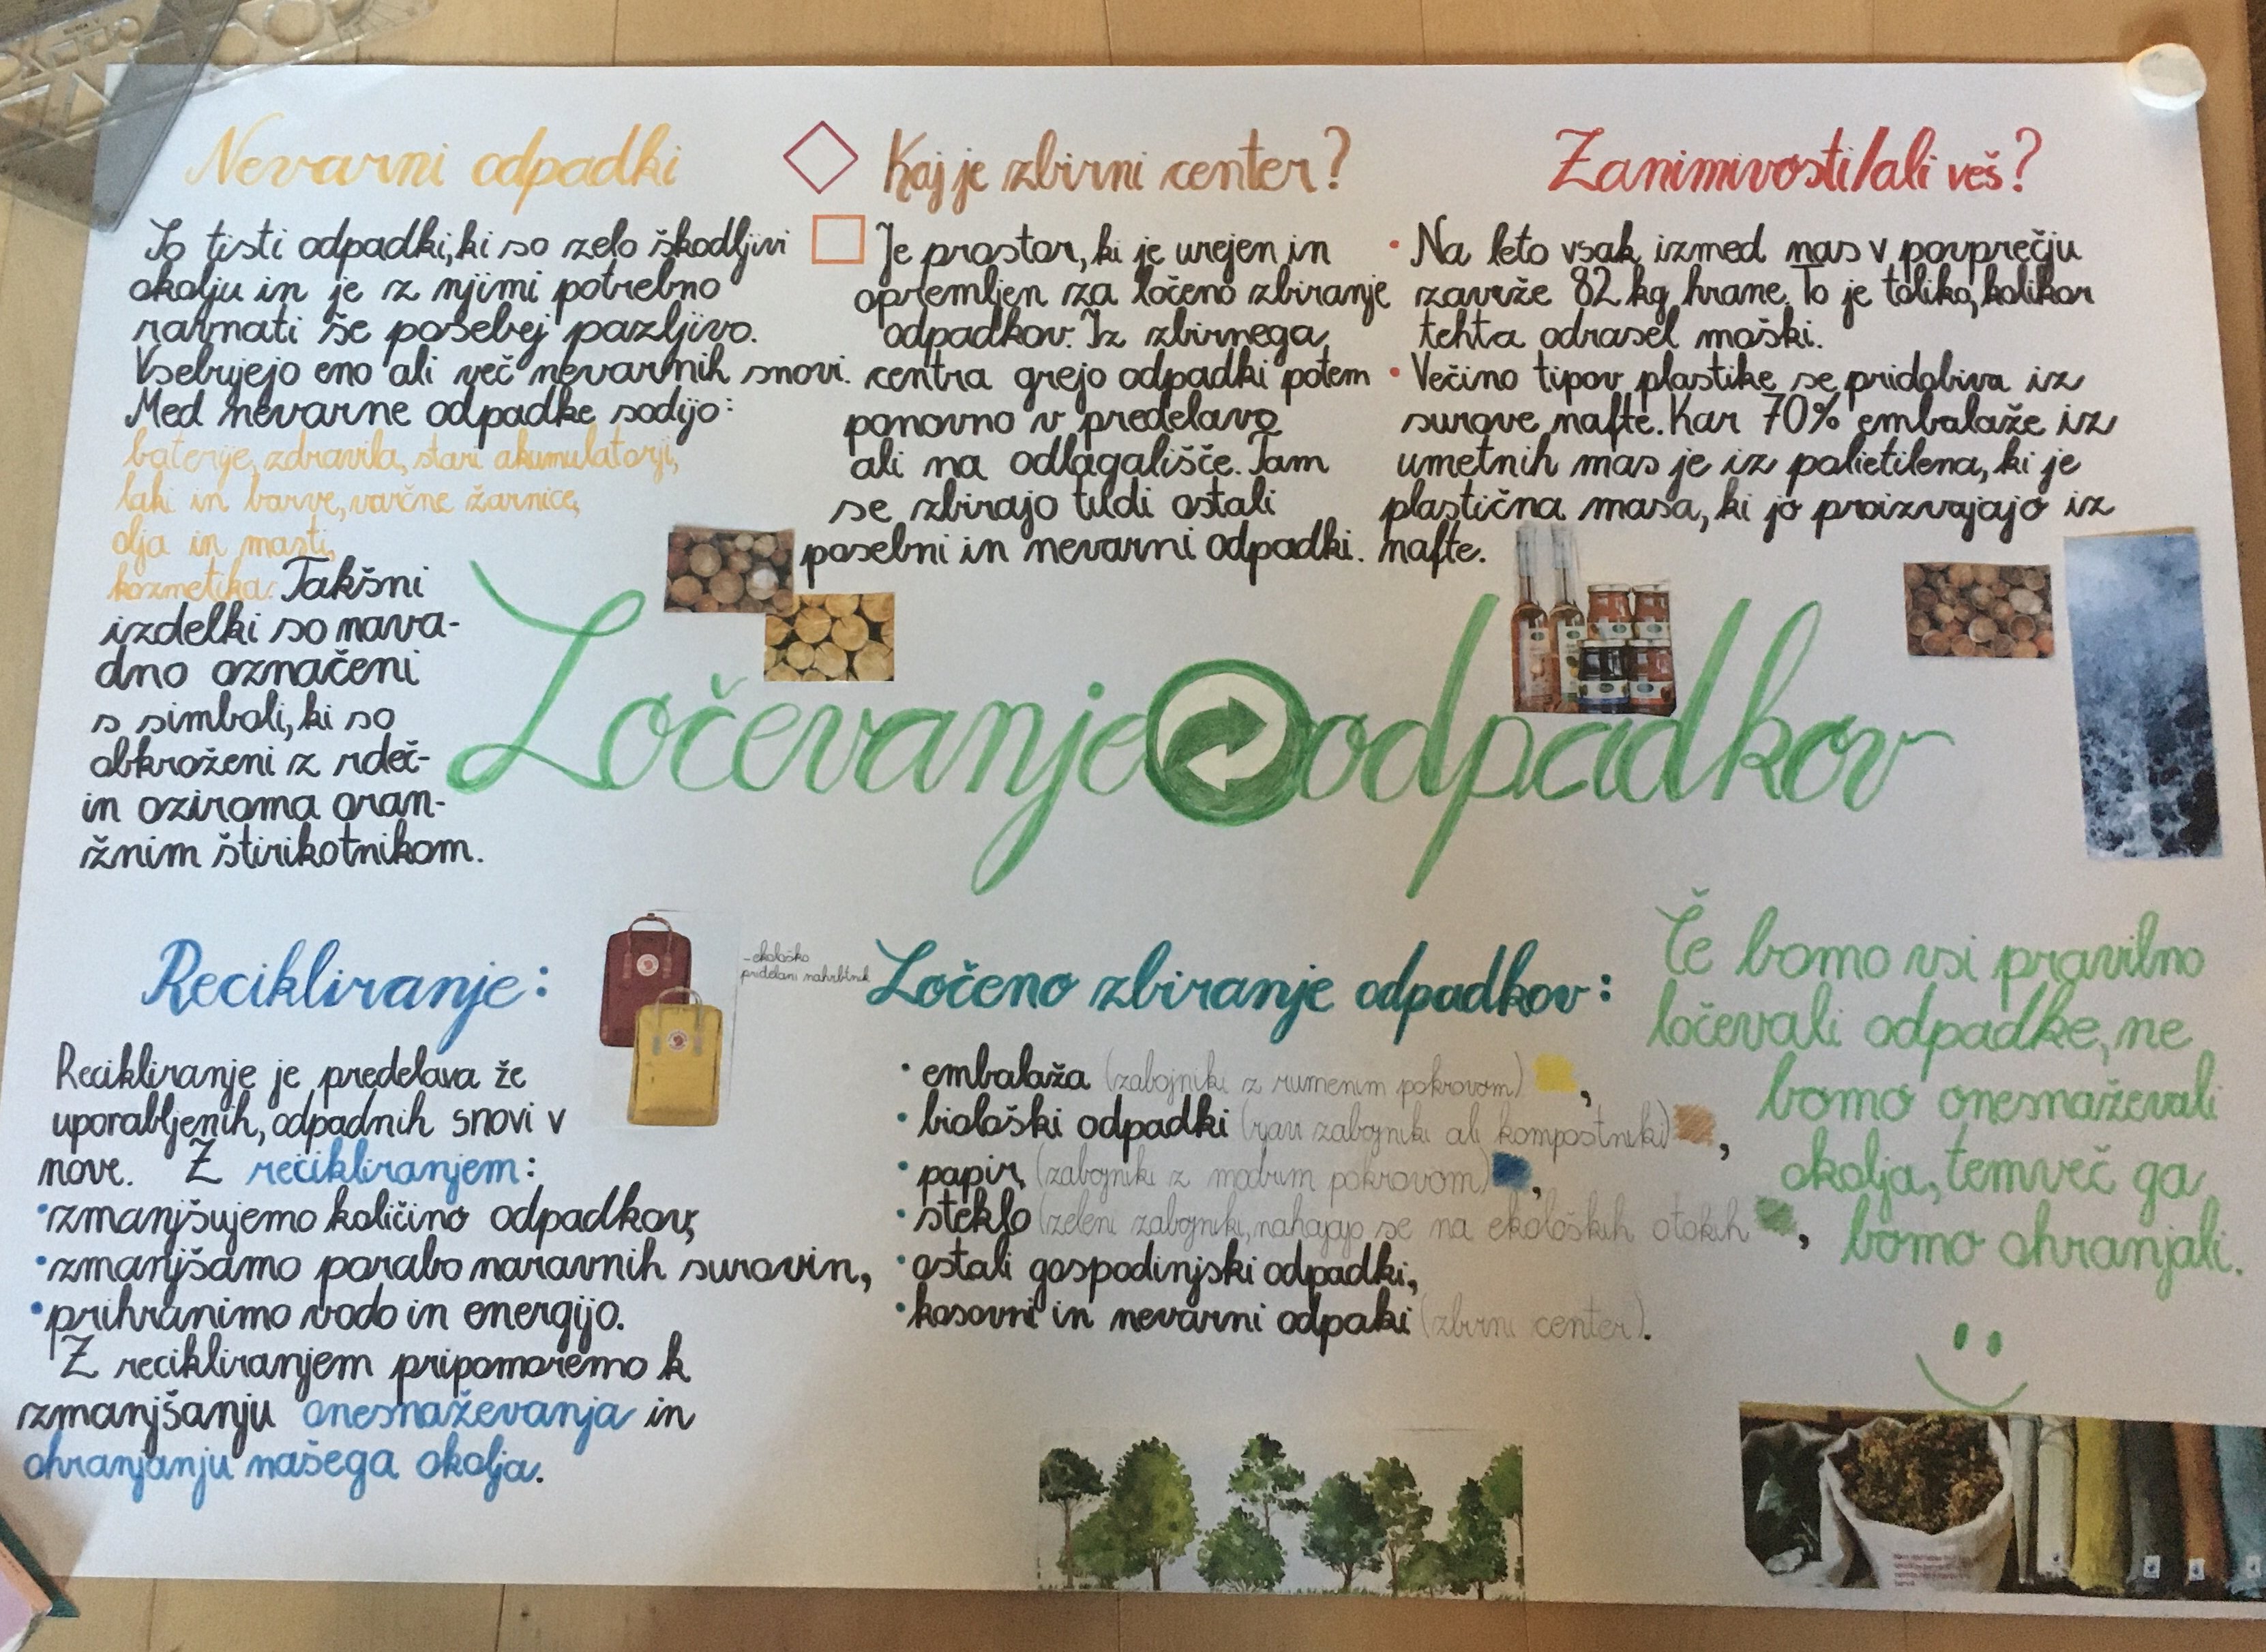 Nevarni odpadki
To tisti odpadki, ki so zelo škodljivi
okolju in je z njimi potrebno
ravnati še posebej pazljivo.
Vsebujejo eno ali več nevarnih snovi.
Med nevarne odpadke sodijo:
baterije, zdravila, stari akumulatorji,
laki in barve, varčne žarnice,
olja in masti,
kozmetika. Takšni
izdelki so nava-
dno označeni
s simboli, ki so
obkroženi z rdeč-
in oziroma oran-
žnim štirikotnikom.
Kaj je zbirni center?
Je prostor, ki je urejen in
opremljen za ločeno zbiranje
odpadkov. Iz zbirnega
centra grejo odpadki potem
ponovno v predelavo
ali na odlagališče. Tam
se zbirajo tudi ostali
posebni in nevarni odpadki.
Zanimivosti/ali veš?
• Na leto vsak izmed nas v povprečju
zavrže 82 kg hrane. To je toliko, kolikor
tehta odrasel moški.
• Večino tipov plastike se pridobiva iz
surove nafte. Kar 70% embalaže iz
umetnih mas je iz polietilena, ki je
plastična masa, ki jo proizvajajo iz
nafte.
Ločevanje odpadkov
Recikliranje:
Recikliranje je predelava že
uporabljenih, odpadnih snovi v
nove. Z recikliranjem:
• zmanjšujemo količino odpadkov,
• zmanjšamo porabo naravnih surovin,
• prihranimo vodo in energijo.
Z recikliranjem pripomoremo k
zmanjšanju onesnaževanja in
ohranjanju našega okolja.
- ekološko
pridelani nahrbtnik
Ločeno zbiranje odpadkov:
• embalaža (zabojniki z rumenim pokrovom),
• biološki odpadki (rjavi zabojniki ali kompostniki),
• papir (zabojniki z modrim pokrovom),
• steklo (zeleni zabojniki, nahajajo se na ekoloških otokih,
• ostali gospodinjski odpadki,
• kosovni in nevarni odpaki (zbirni center).
Če bomo vsi pravilno
ločevali odpadke, ne
bomo onesnaževali
okolja, temveč ga
bomo ohranjali.